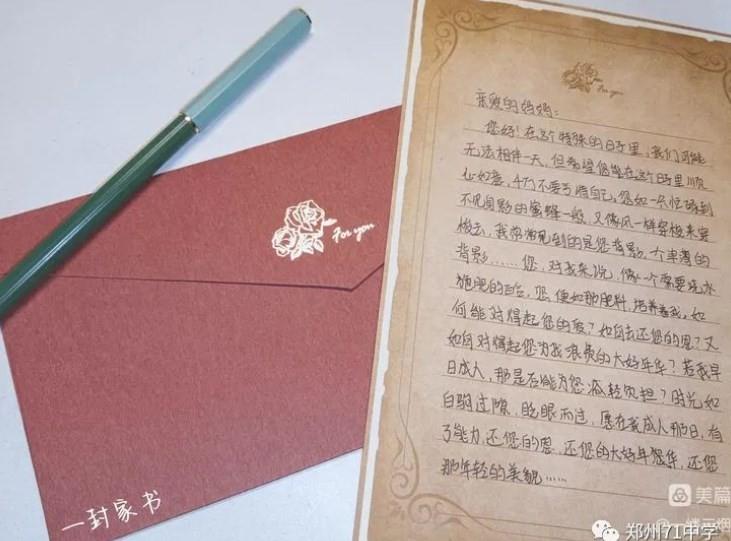 For you
亲爱的妈妈：
您好！在这个特殊的日子里，我们可能
无法相伴一天，但希望您能在这个日子里顺
心如意，千万不要亏待自己。您如一只忙碌到
不见身影的蜜蜂一般，又像风一样穿梭来穿
梭去，我常常见到的是您背影，个单薄的
背影……您，对我来说，像一个需要浇水
施肥的百合，您便如那肥料，培养着我，如
何能对得起您的爱？如何去还您的恩？又
如何对得起您为我浪费的大好年华？若我早
日成人，那是否能为您减轻负担？时光如
白驹过隙，眨眼而过，愿在我成人那日，有
了能力，还您的恩，还您的大好年华，还您
那年轻的美貌……
For you
一封家书
美篇
郑州71中学